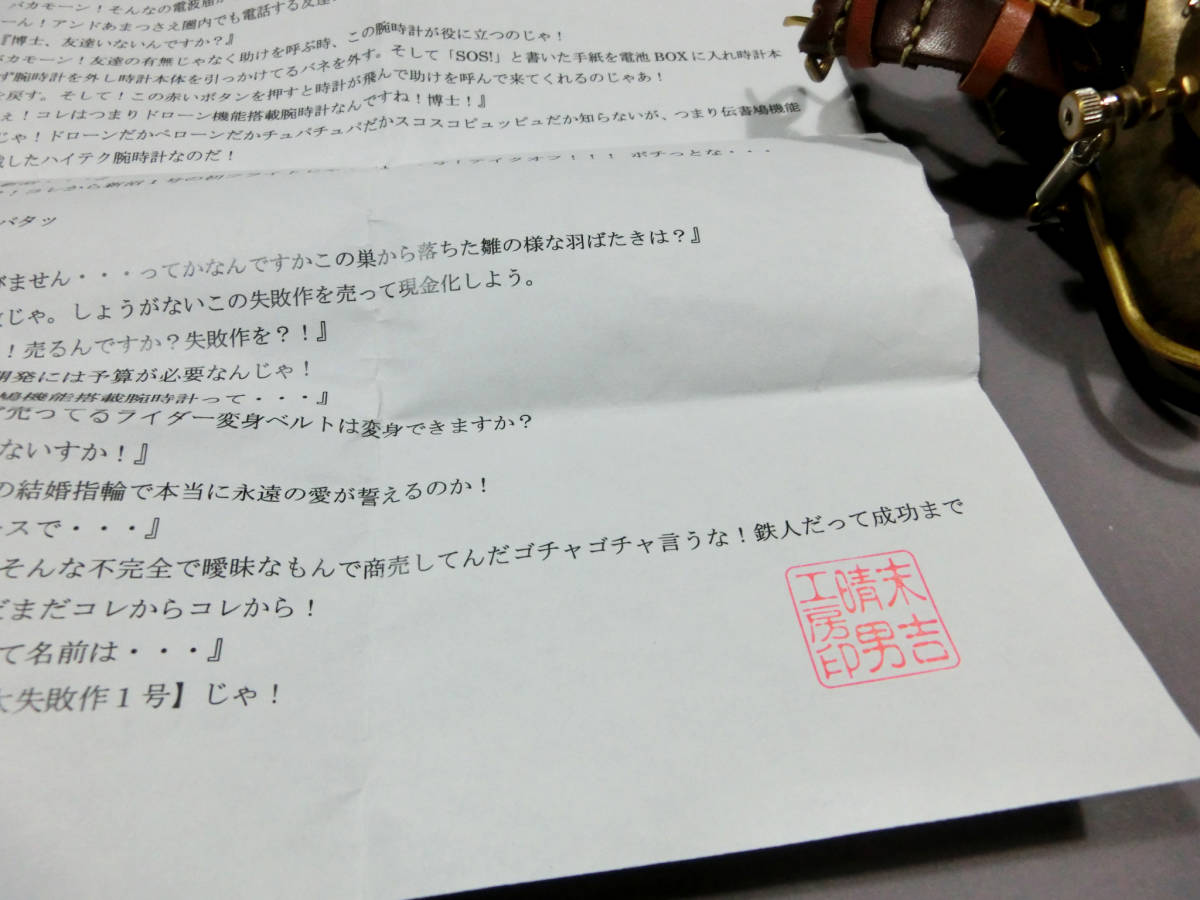 バカモーン！そんなの電波届か
ーん！アンドあまっさえ圏内でも電話する友達
『博士、友達いないんですか？』
バカモーン！友達の有無じゃなく助けを呼ぶ時、この腕時計が役に立つのじゃ！
ず腕時計を外し時計本体を引っかけてるバネを外す。そして「SOS!」と書いた手紙を電池BOXに入れ時計本
を戻す。そして！この赤いボタンを押すと時計が飛んで助けを呼んで来てくれるのじゃあ！
ぇ！コレはつまりドローン機能搭載腕時計なんですね！博士！』
じゃ！ドローンだかペローンだかチュパチュパだかスコスコピュッピュだか知らないが、つまり伝書鳩機能
載したハイテク腕時計なのだ！
！テイクオフ！！！ ポチっとな・・・
バタッ
びません・・・ってかなんですかこの巣から落ちた雛の様な羽ばたきは？』
じゃ。しょうがないこの失敗作を売って現金化しよう。
！売るんですか？失敗作を？！』
開発には予算が必要なんじゃ！
鳩機能搭載腕時計って・・・』
で売ってるライダー変身ベルトは変身できますか？
ないすか！』
の結婚指輪で本当に永遠の愛が誓えるのか！
ースで・・・』
そんな不完全で曖昧なもんで商売してんだゴチャゴチャ言うな！鉄人だって成功まで
だまだコレからコレから！
て名前は・・・』
大失敗作１号】じゃ！
末吉
晴男
工房印